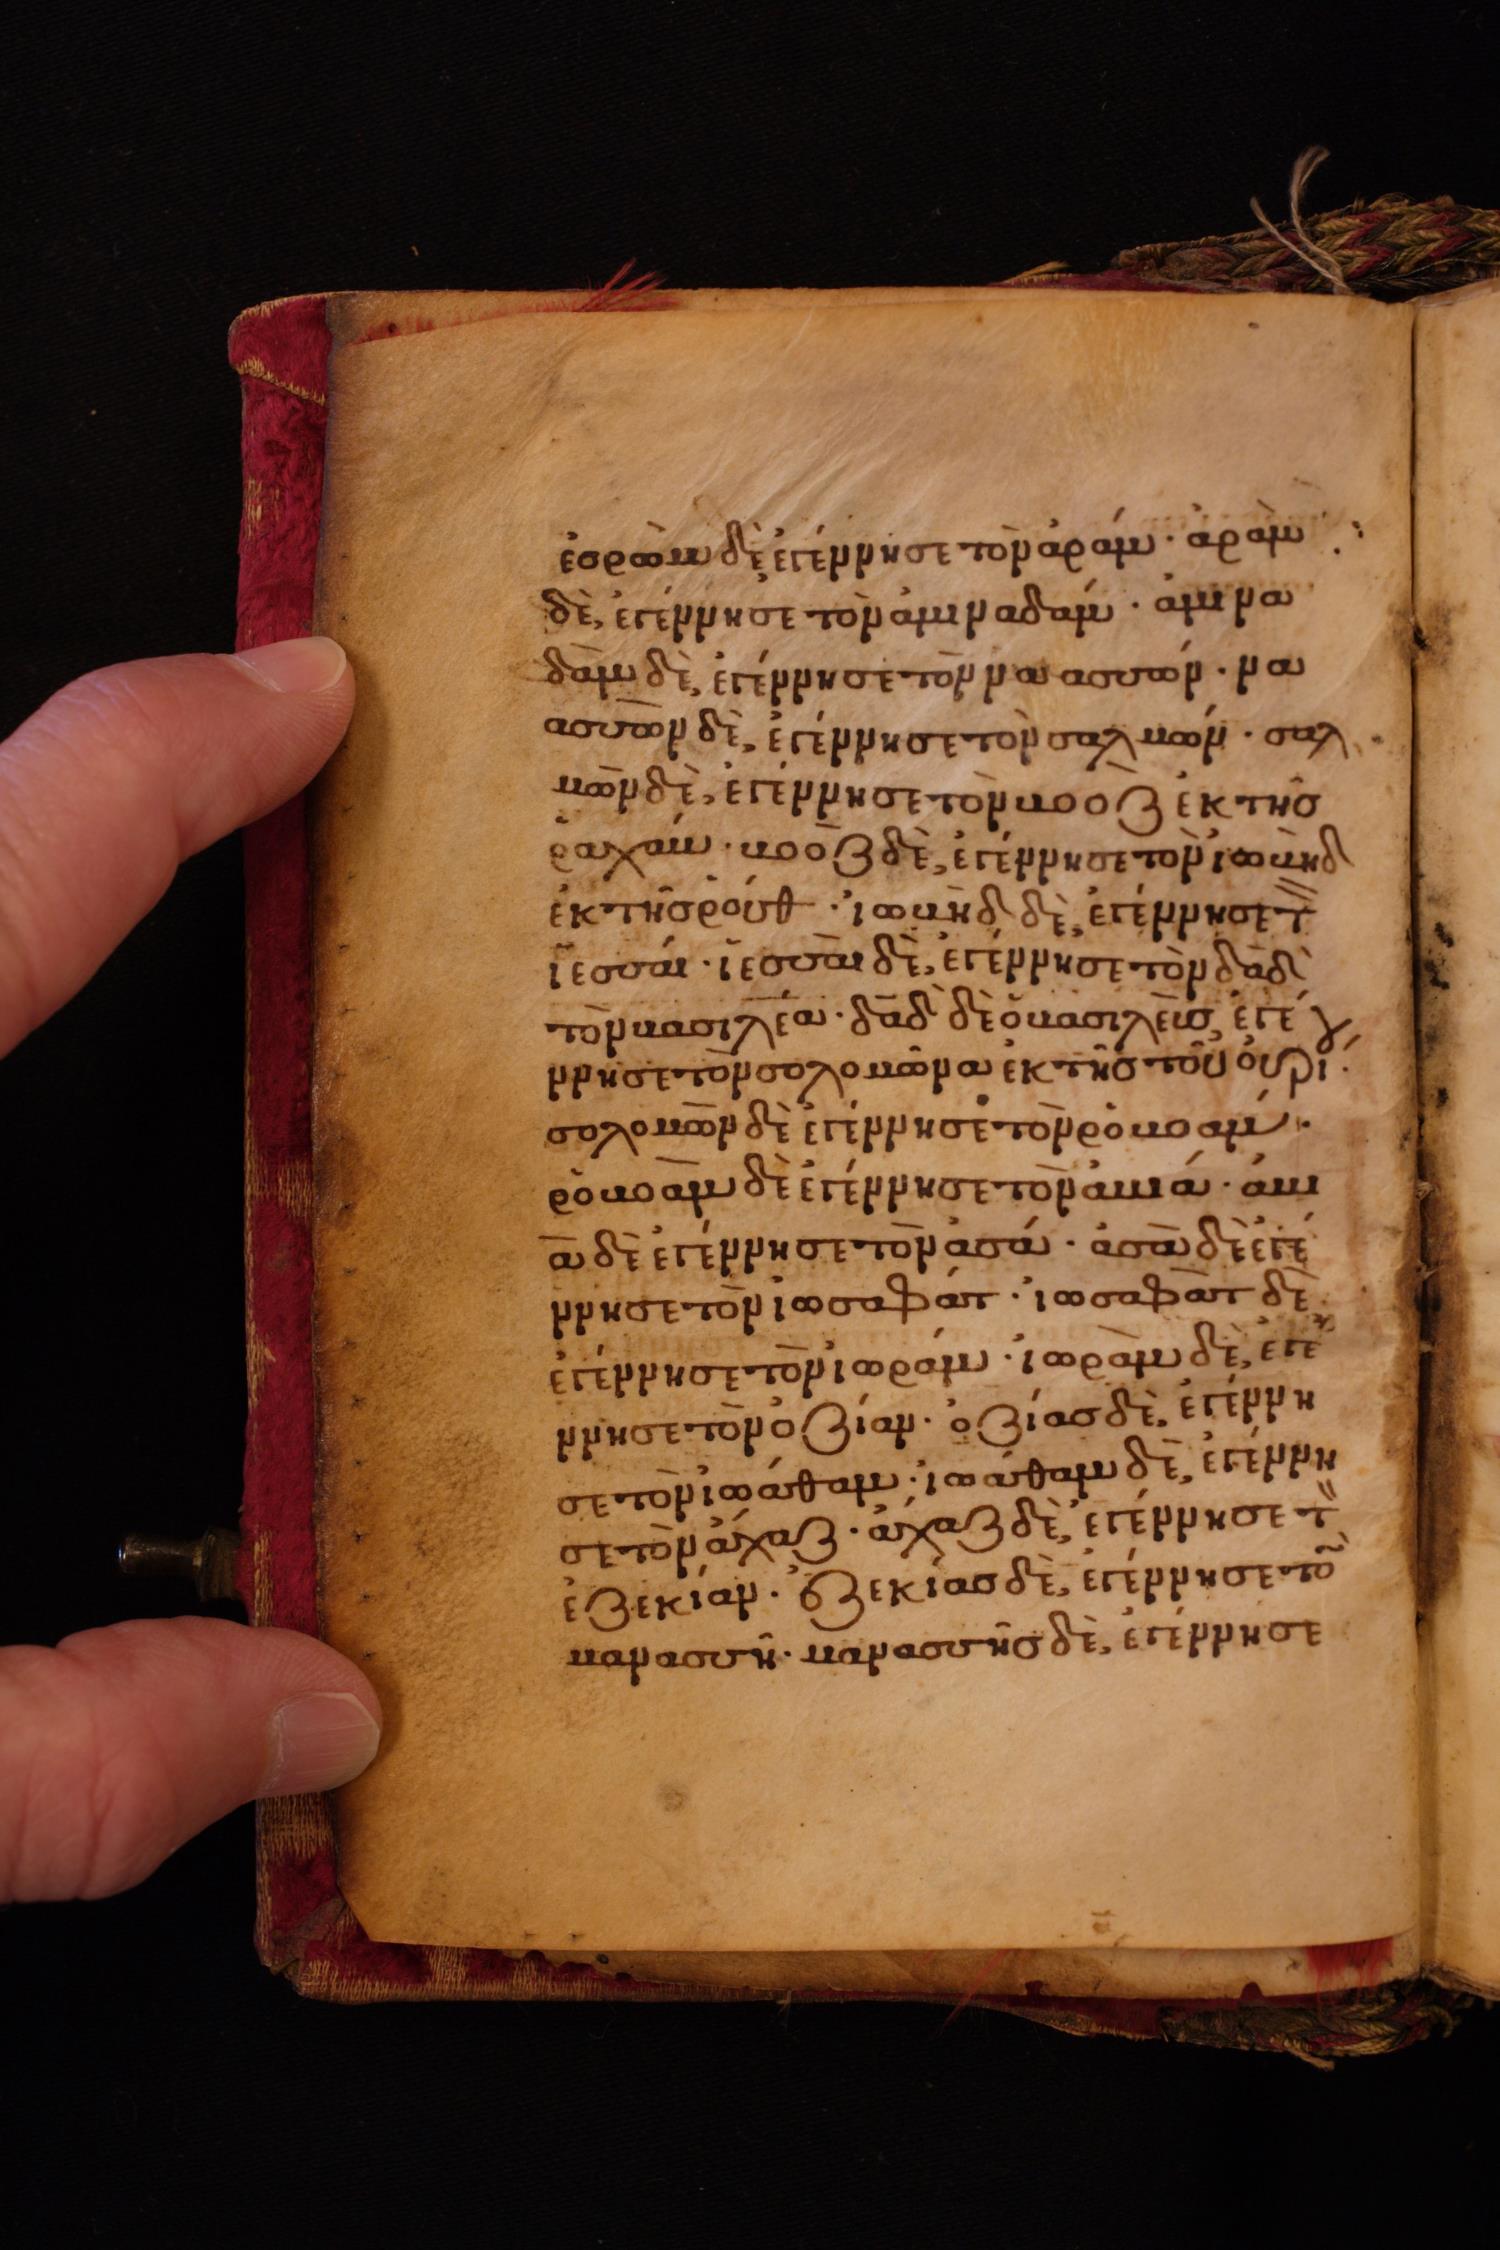 ἐσρὼμ δὲ ἐγέννησε τὸν ἀράμ · ἀρὰμ
δὲ, ἐγέννησε τὸν ἀμιναδάμ · ἀμινα
δὰμ δὲ, ἐγέννησε τὸν ναασσών · να
ασσὼν δὲ, ἐγέννησε τὸν σαλμών · σαλ
μὼν δὲ, ἐγέννησε τὸν βοὸζ ἐκ τῆσ
ῥαχάβ · βοὸζ δὲ, ἐγέννησε τὸν ἰωβὴδ
ἐκ τῆσ ῥούθ · ἰωβὴδ δὲ, ἐγέννησε τ
ἰεσσαί · ἰεσσαὶ δὲ, ἐγέννησε τὸν δᾱδ̀
τὸν βασιλέα · δᾱδ̀ δὲ ὁ βασιλεὺς, ἐγέ
ννησε τὸν σολομῶνα ἐκ τῆσ τοῦ οὐρί ·
σολομὼν δὲ ἐγέννησε τὸν ῥοβοάμ ·
ῥοβοὰμ δὲ ἐγέννησε τὸν ἀβιά · ἀβι
ὰ δὲ ἐγέννησε τὸν ἀσά · ἀσὰ δὲ ἐγέ
ννησε τὸν ἰωσαφάτ · ἰωσαφὰτ δὲ
ἐγέννησε τὸν ἰωράμ · ἰωρὰμ δὲ, ἐγέ
ννησε τὸν ὀζίαν · ὀζίασ δὲ, ἐγέννη
σε τὸν ἰωάθαμ · ἰωάθαμ δὲ, ἐγέννη
σε τὸν ἄχαζ · ἄχαζ δὲ, ἐγέννησε τ
ἐζεκίαν · ἐζεκίασ δὲ, ἐγέννησε το
μανασσῆ · μανασσῆσ δὲ, ἐγέννησε